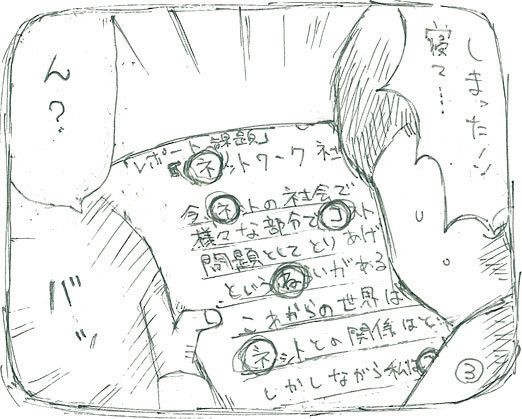 しまった!!
寝て…
ん?
「レポート課題」
ネットワーク社
今、ネットの社会で
様々な部分でコスト
問題としてとりあげ
というねがいがある
これからの世界は
ネットとの関係はと、
しかしながら私は
バッ
③